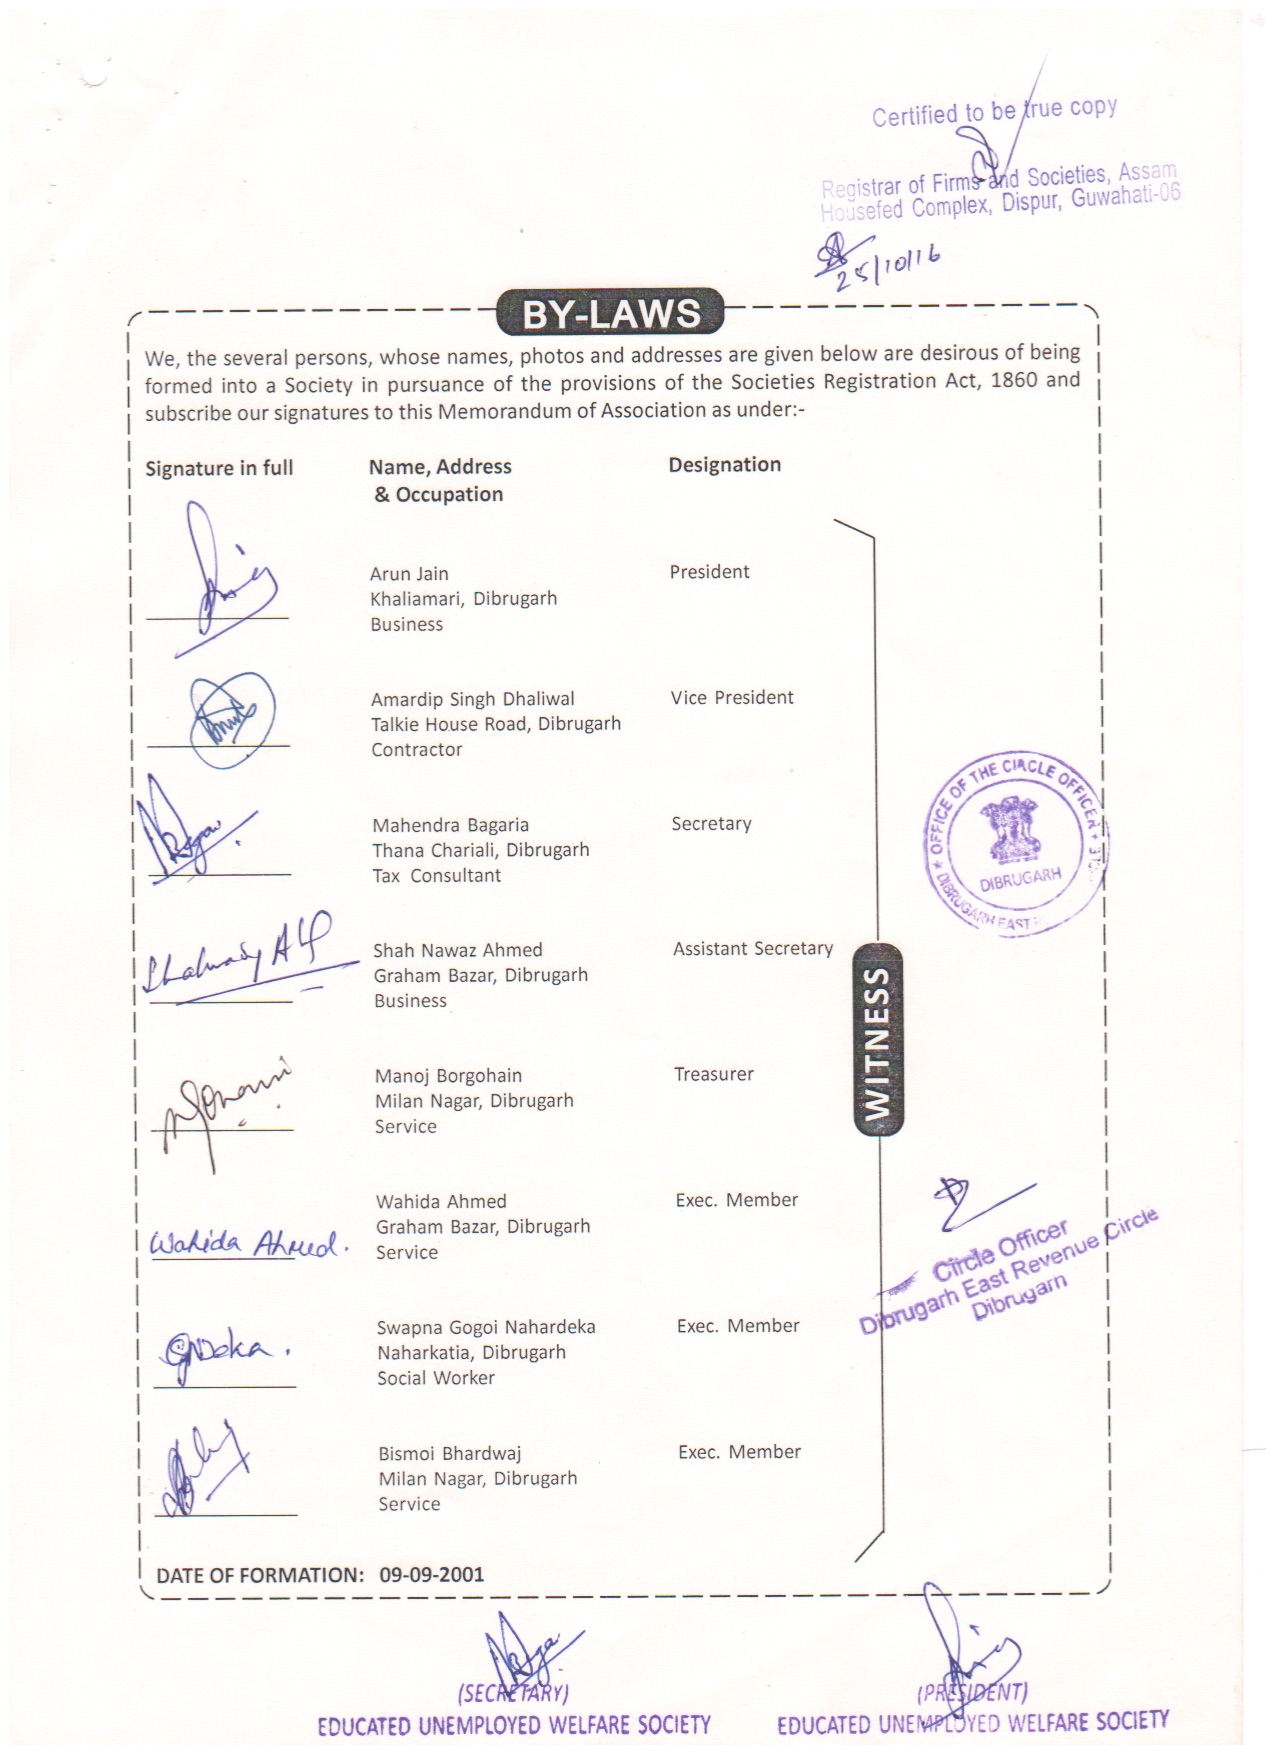 Certified to be true copy
Registrar of Firms and Societies, Assam
Housefed Complex, Dispur, Guwahati-06
25/10/16
BY-LAWS
We, the several persons, whose names, photos and addresses are given below are desirous of being
formed into a Society in pursuance of the provisions of the Societies Registration Act, 1860 and
subscribe our signatures to this Memorandum of Association as under:-
Signature in full Name, Address Designation
& Occupation
Arun Jain President
Khaliamari, Dibrugarh
Business
Amardip Singh Dhaliwal Vice President
Talkie House Road, Dibrugarh
Contractor
Mahendra Bagaria Secretary
Thana Chariali, Dibrugarh
Tax Consultant
Shah Nawaz Ahmed Assistant Secretary
Graham Bazar, Dibrugarh
Business
Manoj Borgohain Treasurer
Milan Nagar, Dibrugarh
Service
Wahida Ahmed Exec. Member
Graham Bazar, Dibrugarh
Wahida Ahmed. Service
Swapna Gogoi Nahardeka Exec. Member
Naharkatia, Dibrugarh
Social Worker
Bismoi Bhardwaj Exec. Member
Milan Nagar, Dibrugarh
Service
WITNESS
OFFICE OF THE CIRCLE OFFICER
DIBRUGARH
DIBRUGARH EAST
Circle Officer
Dibrugarh East Revenue Circle
Dibrugarh
DATE OF FORMATION: 09-09-2001
(SECRETARY) (PRESIDENT)
EDUCATED UNEMPLOYED WELFARE SOCIETY EDUCATED UNEMPLOYED WELFARE SOCIETY